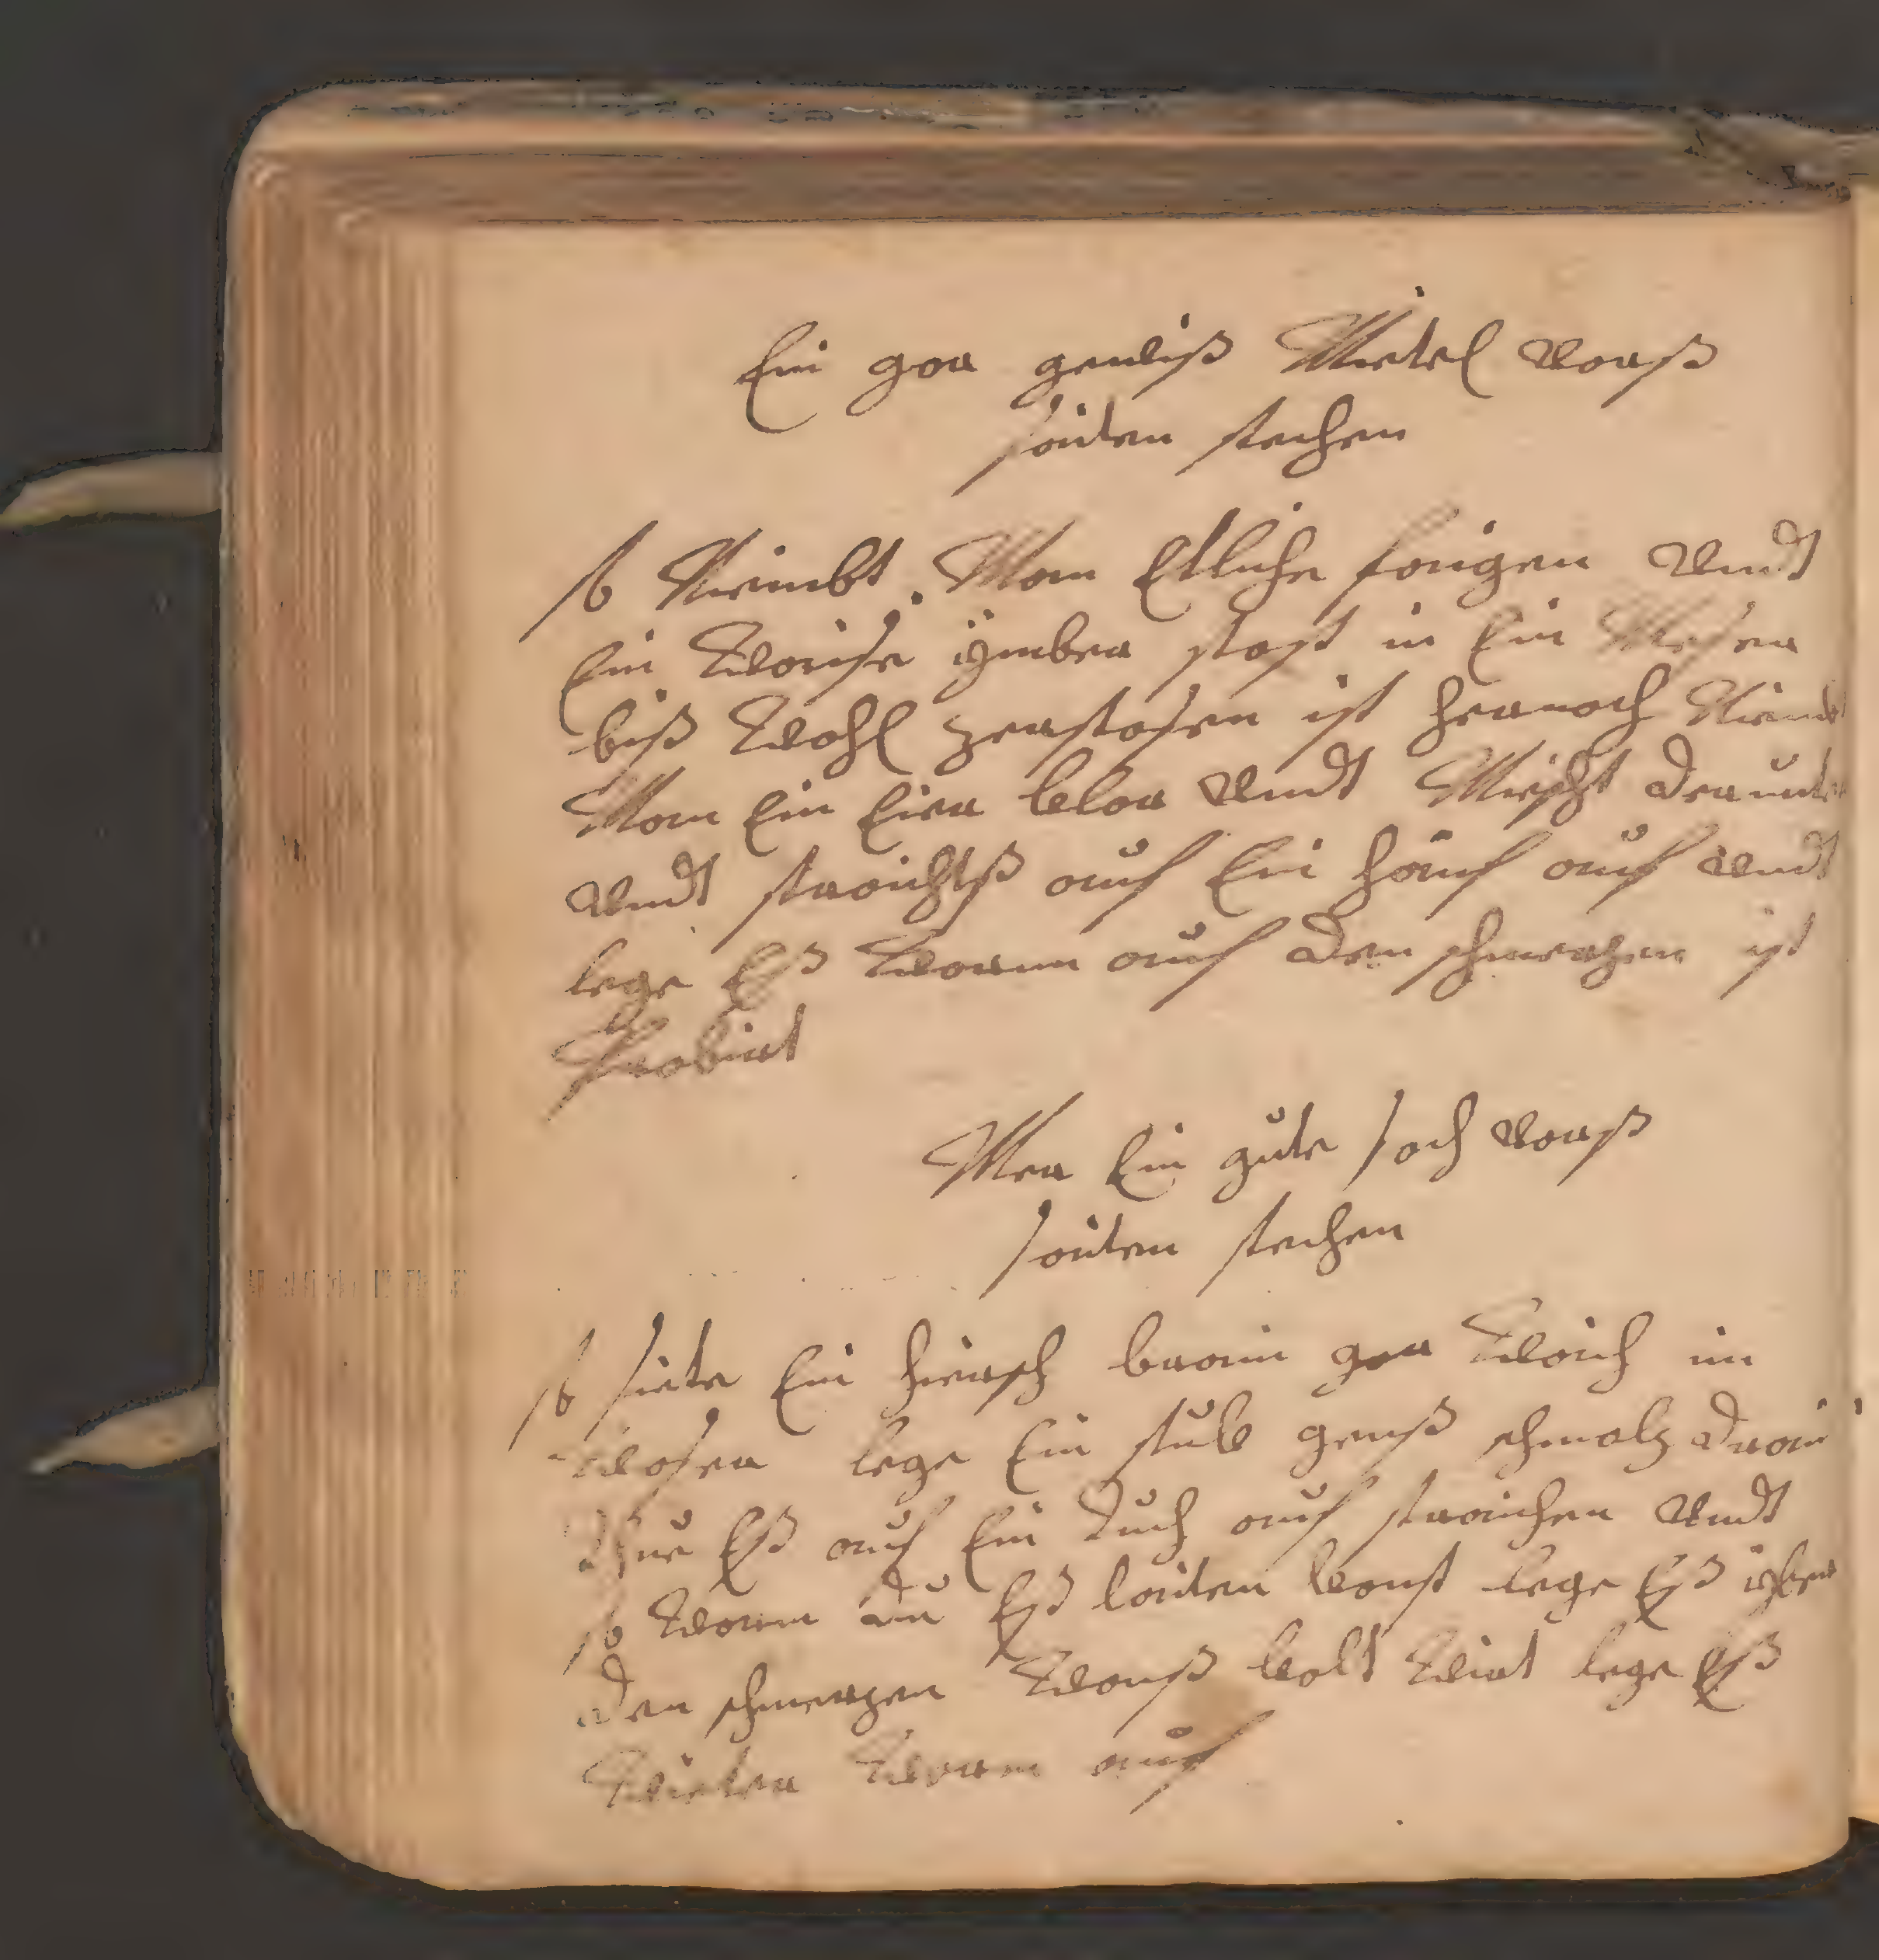 Ein gar gewiß Mietel vorß
seiten stechen
so Niembt Man Etliche feigen Undt
Ein Weise ymber stost in Ein Meser
biß Wohl zerstosen ist hernach Niemb
Man Ein Eier klar Undt Miescht darunter
Undt streichtß auf Ein hanf auf Undt
lege Eß Warm auf den schmerzen ist
Probirt
Mer Ein gute sach vorß
seiten stechen
so siete Ein hiersch brein gar Weich im
Waser lege Ein stuk genß schmalz drein
Thue Eß auf Ein duch auf streichen Undt
so Warm du Eß leiten kanst lege Eß yber
den schmerzen Wanß kalt Wirt lege Eß
Wieter Warm auf